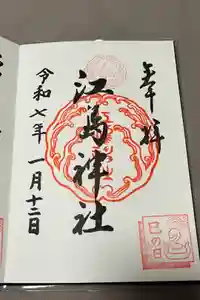 奉拝
江島神社
令和七年一月十二日
巳の日